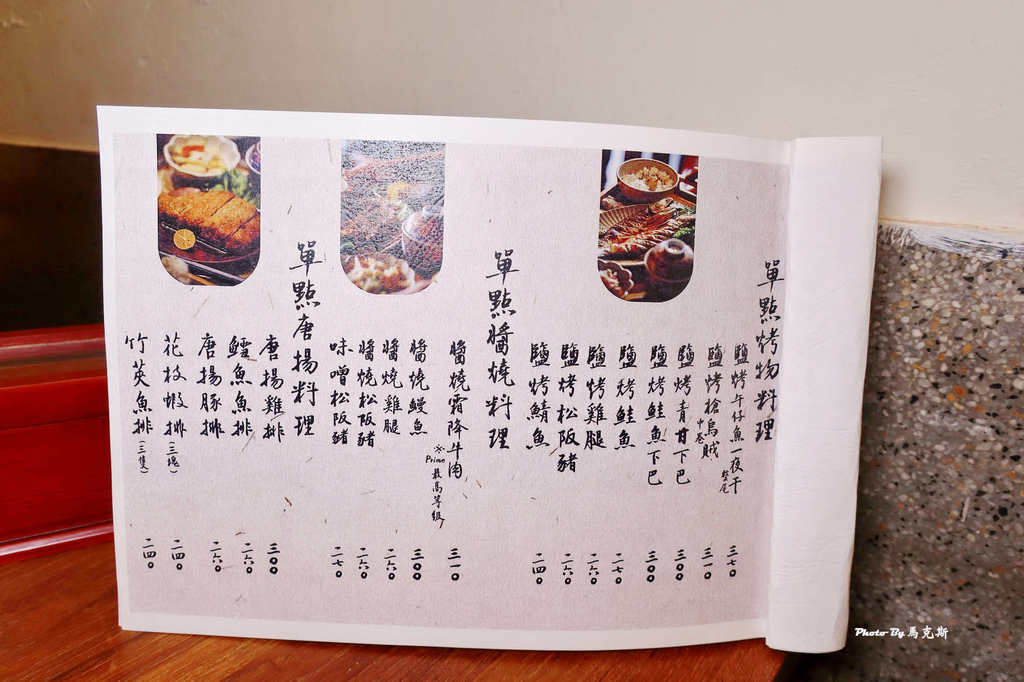 單點烤物料理
鹽烤午仔魚一夜干 整尾 三七〇
鹽烤槍烏賊 中卷 三一〇
鹽烤青甘下巴 三〇〇
鹽烤鮭魚下巴 三〇〇
鹽烤鮭魚 二七〇
鹽烤雞腿 二六〇
鹽烤松阪豬 二六〇
鹽烤鯖魚 二四〇
單點醬燒料理
醬燒霜降牛肉 三一〇
※Prime 最高等級
醬燒鰻魚 三〇〇
醬燒雞腿 二六〇
醬燒松阪豬 二六〇
味噌松阪豬 二七〇
單點唐揚料理
唐揚雞排 三〇〇
鱈魚魚排 二六〇
唐揚豚排 二六〇
花枝蝦排(三塊) 二四〇
竹莢魚排(三隻) 二四〇
Photo By 馬克斯